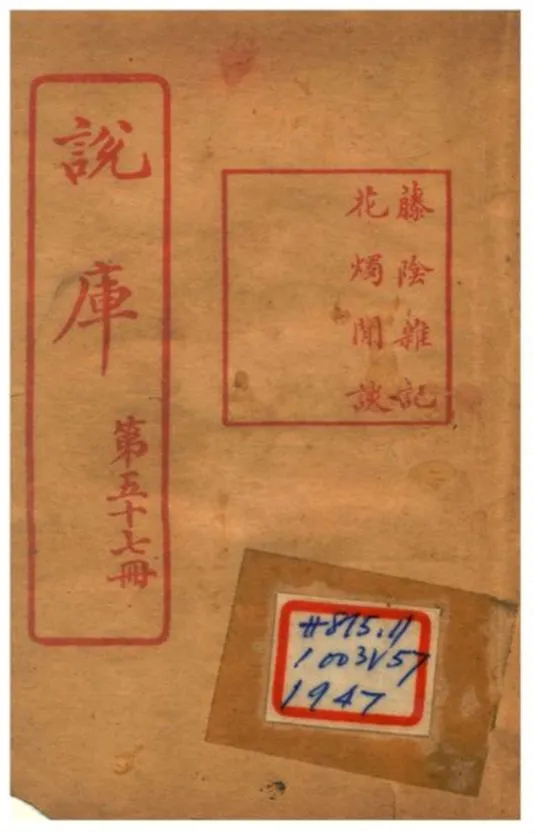 說庫
第五十七冊
藤陰雜記
花燭閒談
#815.11
1003V57
1947